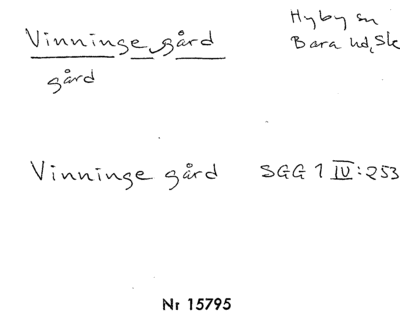 Vinninge gård
gård
Hyby sn
Bara hd, Sk
Vinninge gård SGG 1 IV:253
Nr 15795